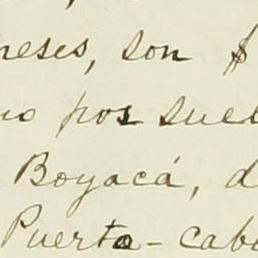 neses, son $
no por suel
Boyacá, d
Puerto-cab